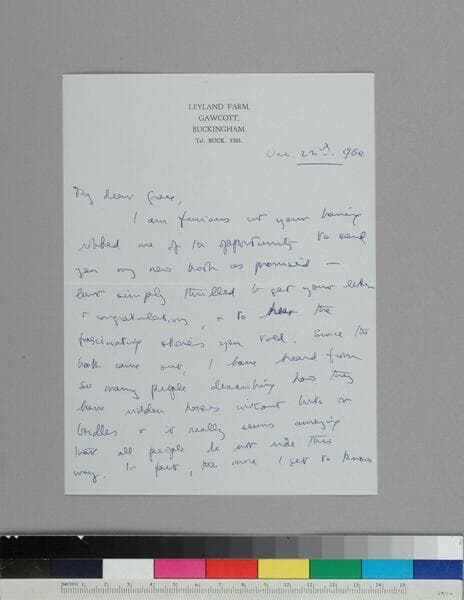 LEYLAND FARM,
GAWCOTT,
BUCKINGHAM.
Tel. BUCK. 3203.
22nd. 1960
My dear Grace,
I am furious at your having
robbed me of the opportunity to send
you my new book as promised —
but simply thrilled to get your letter
& congratulations, & to hear the
fascinating stories you told. Since the
book came out, I have heard from
so many people describing how they
have ridden horses without bits or
bridles & it really seems amazing
that all people do not ride this
way. In fact, the more I get to know
METRIC 1 2 3 4 5 6 7 8 9 10 11 12 13 14 15